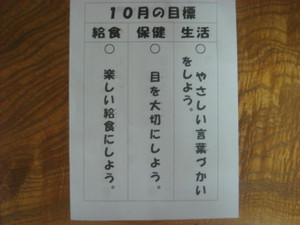 10月の目標
生活
○ やさしい言葉づかい
をしよう。
保健
○ 目を大切にしよう。
給食
○ 楽しい給食にしよう。